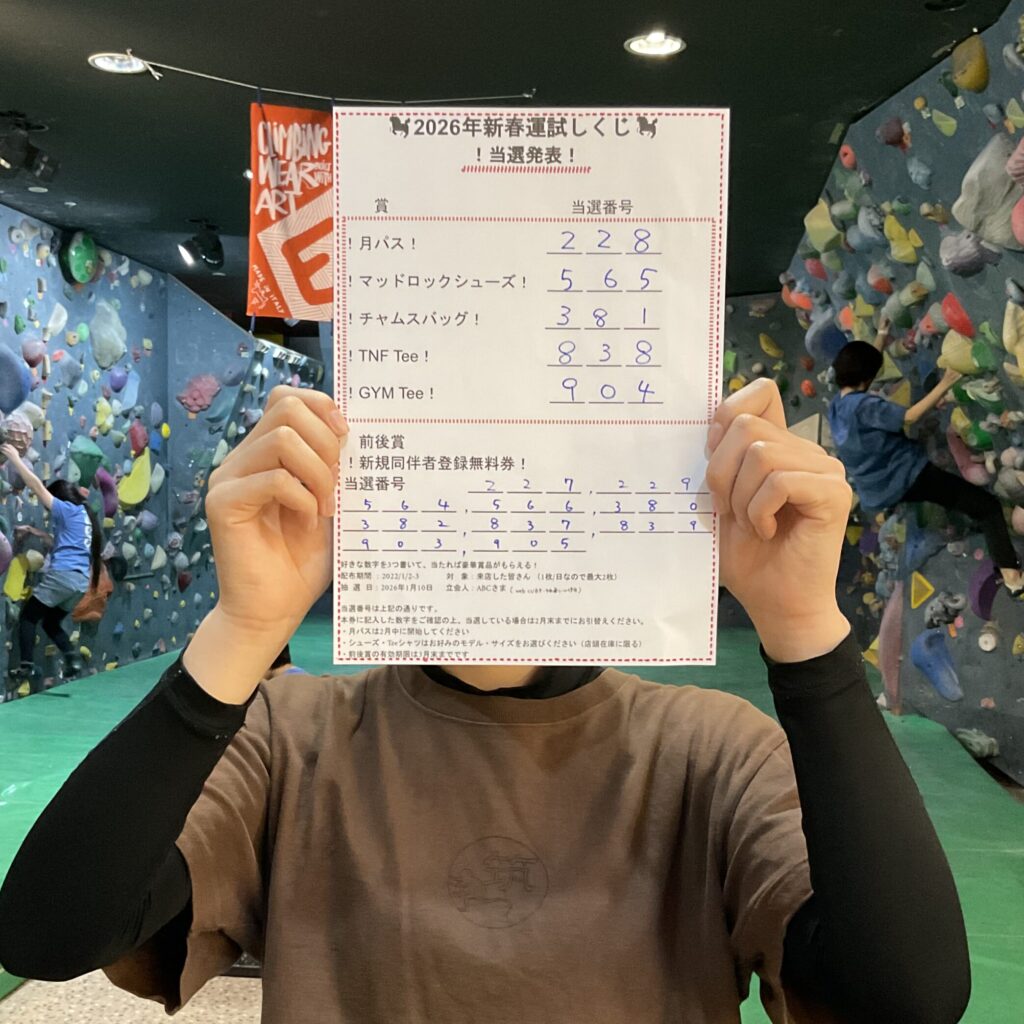 CLIMBING
WEAR BUILT WITH
ART
E
MADE IN ITALY
2026年新春運試しくじ
！当選発表！
賞 当選番号
！月パス！ 2 2 8
！マッドロックシューズ！ 5 6 5
！チャムスバッグ！ 3 8 1
！TNF Tee！ 8 3 8
！GYM Tee！ 9 0 4
前後賞
！新規同伴者登録無料券！
当選番号 2 2 7 , 2 2 9
5 6 4 , 5 6 6 , 3 8 0
3 8 2 , 8 3 7 , 8 3 9
9 0 3 , 9 0 5
好きな数字を3つ書いて、当たれば豪華賞品がもらえる！
配布期間：2022/1/2-3 対 象：来店した皆さん （1枚/日なので最大2枚）
抽 選 日：2026年1月10日 立会人：ABCさま
当選番号は上記の通りです。
本券に記入した数字をご確認の上、当選している場合は2月末までにお引替えください。
・月パスは2月中に開始してください
・シューズ・Teeシャツはお好みのモデル・サイズをお選びください（店頭在庫に限る）
・前後賞の有効期限は3月末までです